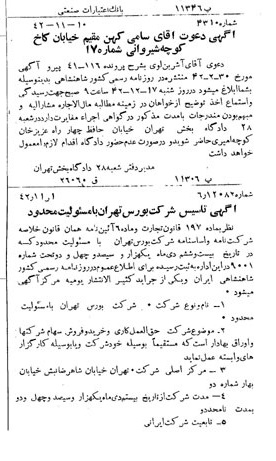 بانک اعتبارات صنعتی
شماره ۴۳۱۰ ۱۰-۱۱-۴۲ ۱۱۳۴۶ب
آگهی دعوت آقای سامی کهن مقیم خیابان کاخ
کوچه شیروانی شماره ۱۷
دعوی آقای آشرین‌لوی بشرح پرونده ۱۱۶-۴۱ پیرو آگهی
مورخ ۳۰-۲-۴۲ منتشره در روزنامه رسمی کشور شاهنشاهی بدینوسیله
بشما ابلاغ میشود در روز شنبه ۱۷-۱۲-۴۲ ساعت ۹ صبح جهت رسیدگی
واستماع اخذ توضیح از خواهان در زمینه مطالبه مال الاجاره مشارالیه و
مبهم بودن مندرجات باستند مدت مذکور در گواهی اجراء مغایرت دارد در شعبه
۲۸ دادگاه بخش تهران خیابان حافظ چهار راه عزیزخان
کوچه امیری حاضر شوید و درصورت عدم حضور دادگاه اقدام لازم معمول
خواهد داشت
مدیر دفتر شعبه ۲۸ دادگاه بخش تهران
۱۱۳۰۶ب ت ۲۶۰۶۰
شماره ۶ر۱۲۰۸۲ ۱ر۱۱ر۴۲
آگهی تاسیس شرکت بورس تهران با مسئولیت محدود
نظر بماده ۱۹۷ قانون تجارت وماده ۹ آئین نامه همان قانون خلاصه
شرکت نامه واساسنامه شرکت بورس تهران با مسئولیت محدود که
در تاریخ بیست وششم دی ماه یکهزار و سیصد و چهل و دو تحت شماره
۹۰۰۱ در این اداره به ثبت رسیده برای اطلاع عموم در روزنامه رسمی کشور
شاهنشاهی ایران ویکی از جراید کثیر الانتشار یومیه مرکز آگهی
میشود ۰
۱- نام ونوع شرکت ۰ شرکت بورس تهران با مسئولیت
محدود ۰
۲- موضوع شرکت حق العمل کاری وخرید وفروش سهام شرکتها
واوراق بهادار است که مستقیما بوسیله خود شرکت ویا بوسیله کارگزار
های وابسته عمل نماید
۳- مرکز اصلی شرکت تهران خیابان شاهرضا نبش خیابان
بهار شماره دو
۴- مدت شرکت از تاریخ بیستم دی ماه یکهزار وسیصد وچهل ودو
بمدت نامحدود
۵- تابعیت شرکت ایرانی